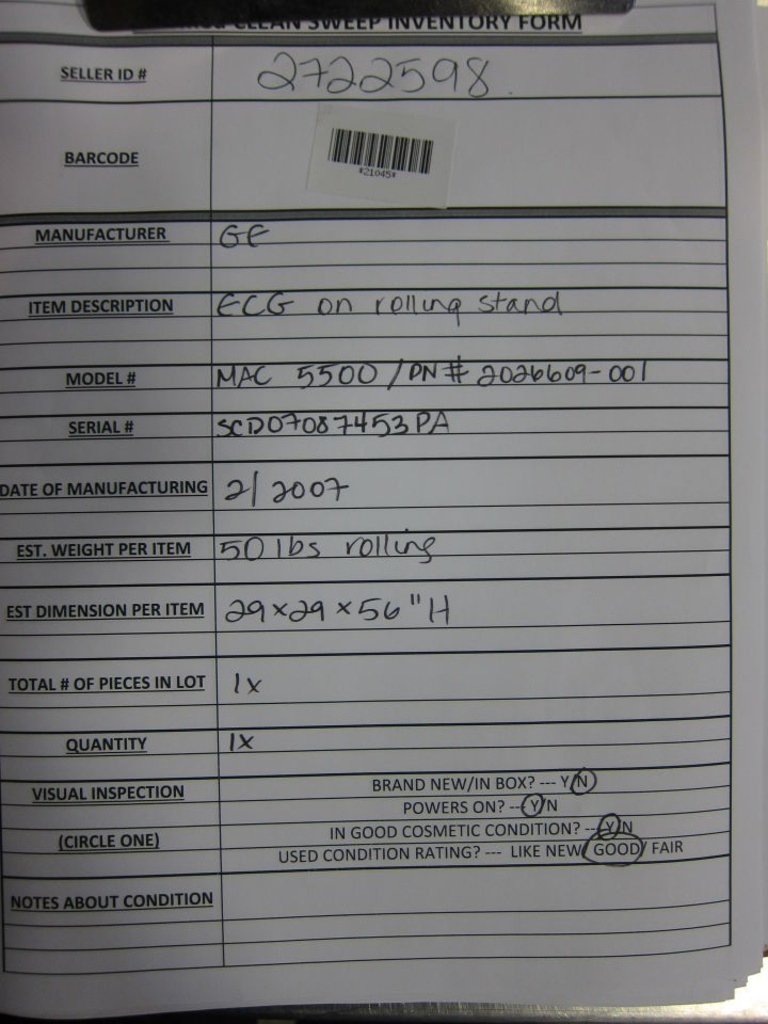 CLEAN SWEEP INVENTORY FORM
SELLER ID # 2722598
BARCODE
*21045*
MANUFACTURER GE
ITEM DESCRIPTION ECG on rolling stand
MODEL # MAC 5500 / PN# 2026609-001
SERIAL # SCD07087453PA
DATE OF MANUFACTURING 2/2007
EST. WEIGHT PER ITEM 50 lbs rolling
EST DIMENSION PER ITEM 29x29x56"H
TOTAL # OF PIECES IN LOT 1x
QUANTITY 1x
VISUAL INSPECTION BRAND NEW/IN BOX? --- Y/N
POWERS ON? --- Y/N
(CIRCLE ONE) IN GOOD COSMETIC CONDITION? ---Y/N
USED CONDITION RATING? --- LIKE NEW/ GOOD/ FAIR
NOTES ABOUT CONDITION